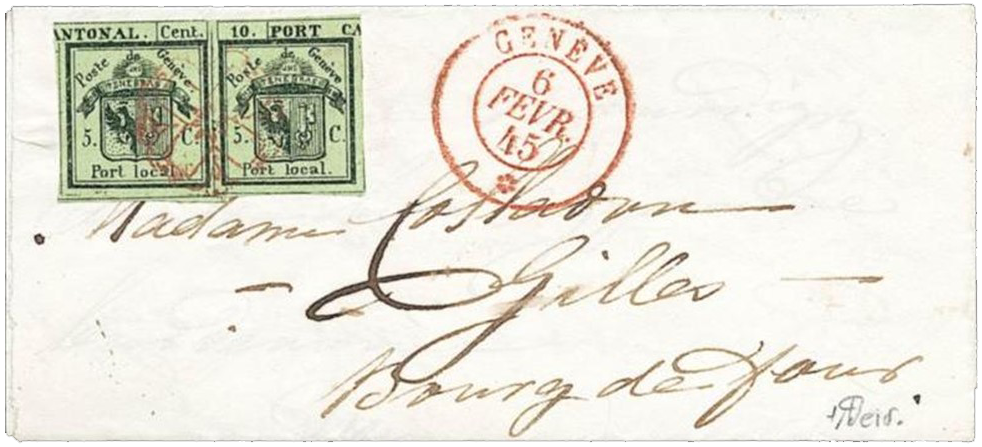 ANTONAL. Cent. 10. PORT CA
Poste de Genève
POST TENEBRAS
5. C.
Port local.
Poste de Genève
TENEBRAS
5. C.
Port local.
GENÈVE
6
FEVR.
45
Madame
Gilles
Bourg de Four